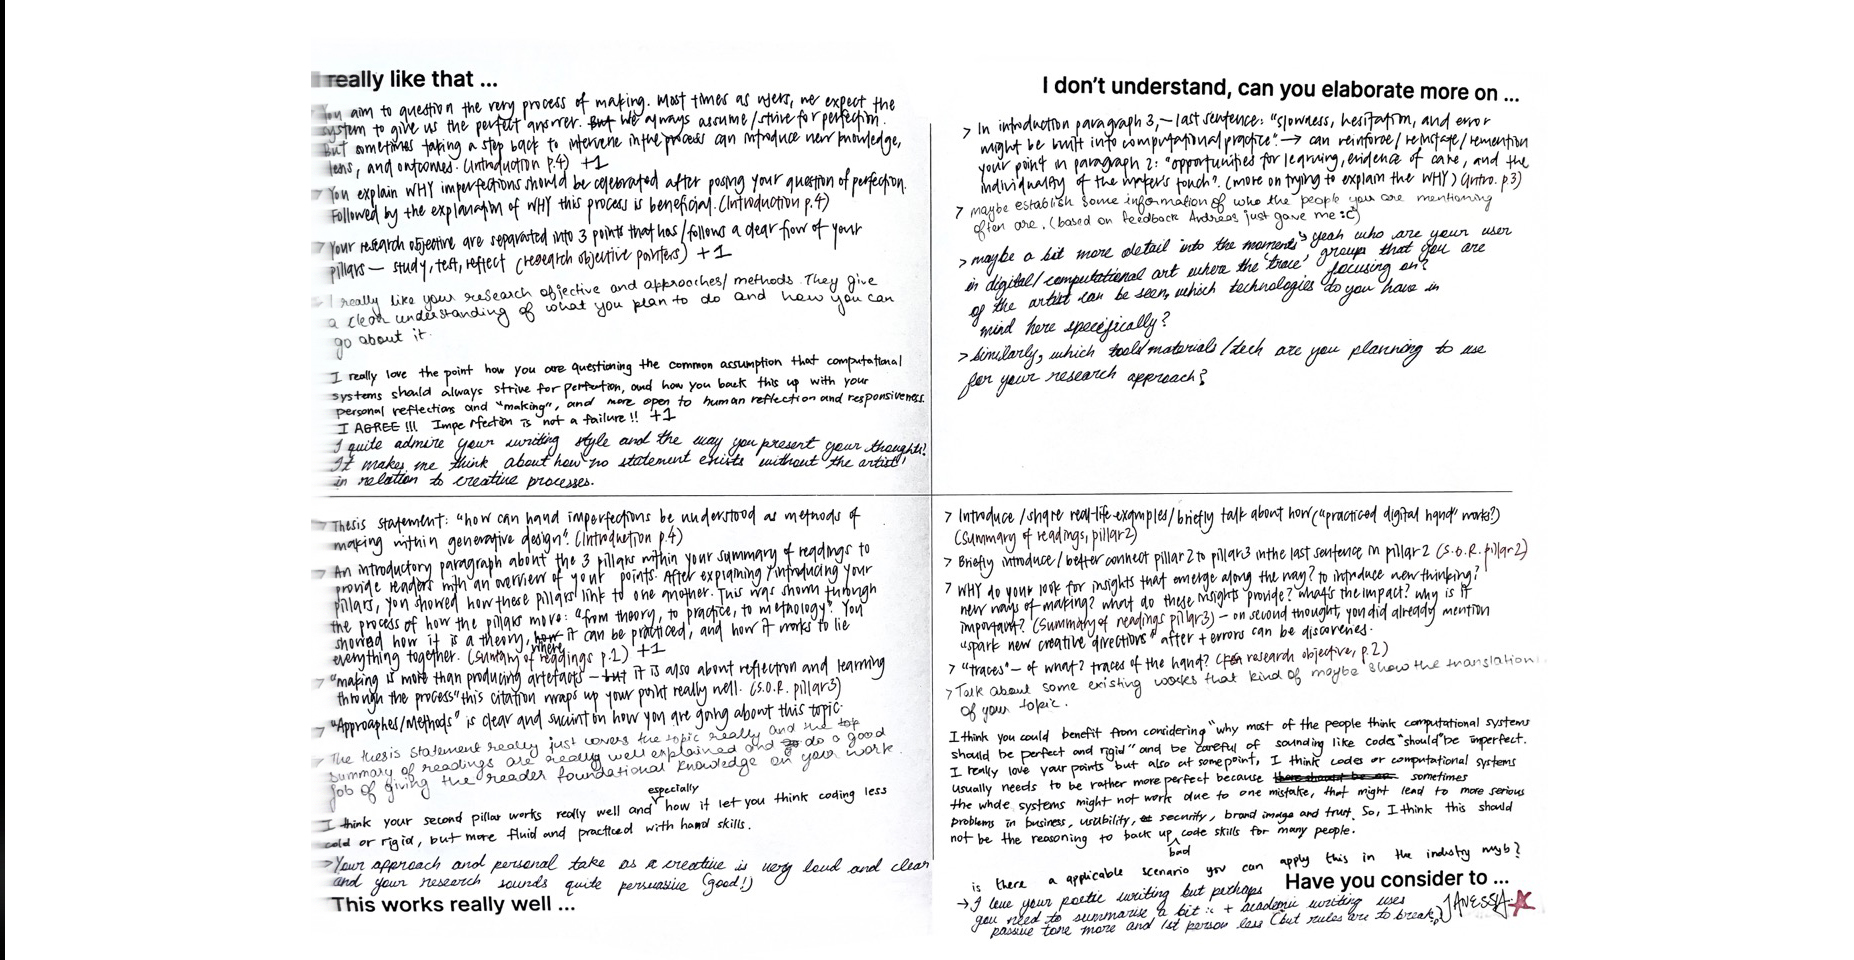 I really like that ...
You aim to question the very process of making. Most times as users, we expect the
system to give us the perfect answer. But We always assume/strive for perfection.
but sometimes taking a step back to intervene in the process can introduce new knowledge,
lens, and outcomes. (Introduction p.4) +1
> You explain WHY imperfections should be celebrated after posing your question of perfection.
Followed by the explanation of WHY this process is beneficial. (Introduction p.4)
> Your research objective are separated into 3 points that has/follows a clear flow of your
pillars — study, test, reflect (research objective pointers) +1
I really like your research objective and approaches/methods. They give
a clear understanding of what you plan to do and how you can
go about it.
I really love the point how you are questioning the common assumption that computational
systems should always strive for perfection, and how you back this up with your
personal reflections and "making", and more open to human reflection and responsiveness.
I AGREE !!! Imperfection is not a failure!! +1
I quite admire your writing style and the way you present your thoughts!
It makes me think about how 'no statement exists without the artist'
in relation to creative processes.
I don't understand, can you elaborate more on ...
> In introduction paragraph 3, — last sentence: "slowness, hesitation, and error
might be built into computational practice" → can reinforce/reinstate/remention
your point in paragraph 2: "opportunities for learning, evidence of care, and the
individuality of the maker's touch". (more on trying to explain the WHY) (Intro. p3)
> maybe establish some information of who the people you are mentioning
often are. (based on feedback Andreas just gave me :C)
↳ yeah who are your user
groups that you are
focusing on?
> maybe a bit more detail into the moments
in digital/computational art where the 'trace'
of the artist can be seen, which technologies do you have in
mind here specifically?
> Similarly, which tools/materials/tech are you planning to use
for your research approach?
> Thesis statement: "how can hand imperfections be understood as methods of
making within generative design". (Introduction p.4)
> An introductory paragraph about the 3 pillars within your summary of readings to
provide readers with an overview of your points. After explaining/introducing your
pillars, you showed how these pillars link to one another. This was shown through
the process of how the pillars move: "from theory, to practice, to methology". You
showed how it is a theory, how where it can be practiced, and how it works to lie
everything together. (Sumtary of readings p.1) +1
> "making is more than producing artefacts — but it is also about reflection and learning
through the process" this citation wraps up your point really well. (S.O.R. pillar3)
> "Approaches/Methods" is clear and succint on how you are going about this topic.
> The thesis statement really just covers the topic really and the top
summary of readings are really well explained and do a good
job of giving the reader foundational knowledge on your work.
I think your second pillar works really well and especially how it let you think coding less
cold or rigid, but more fluid and practiced with hand skills.
> Your approach and personal take as a creative is very loud and clear
and your research sounds quite persuasive (good!)
This works really well ...
> Introduce/share real-life examples/briefly talk about how ("practiced digital hand" works?)
(Summary of readings, pillar 2)
> Briefly introduce/better connect pillar 2 to pillar 3 in the last sentence in pillar 2 (S.O.R. pillar 2)
> WHY do your look for insights that emerge along the way? to introduce new thinking?
new ways of making? what do these insights provide? what's the impact? why is it
important? (Summary of readings pillar 3) — on second thought, you did already mention
"spark new creative directions" after + errors can be discoveries.
> "traces" — of what? traces of the hand? (research objective, p.2)
> Talk about some existing works that kind of maybe show the translation
of your topic.
I think you could benefit from considering "why most of the people think computational systems
should be perfect and rigid" and be careful of sounding like codes "should" be imperfect.
I really love your points but also at some point, I think codes or computational systems
usually needs to be rather more perfect because sometimes
the whole systems might not work due to one mistake, that might lead to more serious
problems in business, usability, security, brand image and trust. So, I think this should
not be the reasoning to back up bad code skills for many people.
is there a applicable scenario you can apply this in the industry mayb?
Have you consider to ...
→ I love your poetic writing but perhaps
you need to summarise a bit :: + academic writing uses
passive tone more and 1st person less (but rules are to break)
JANESSA